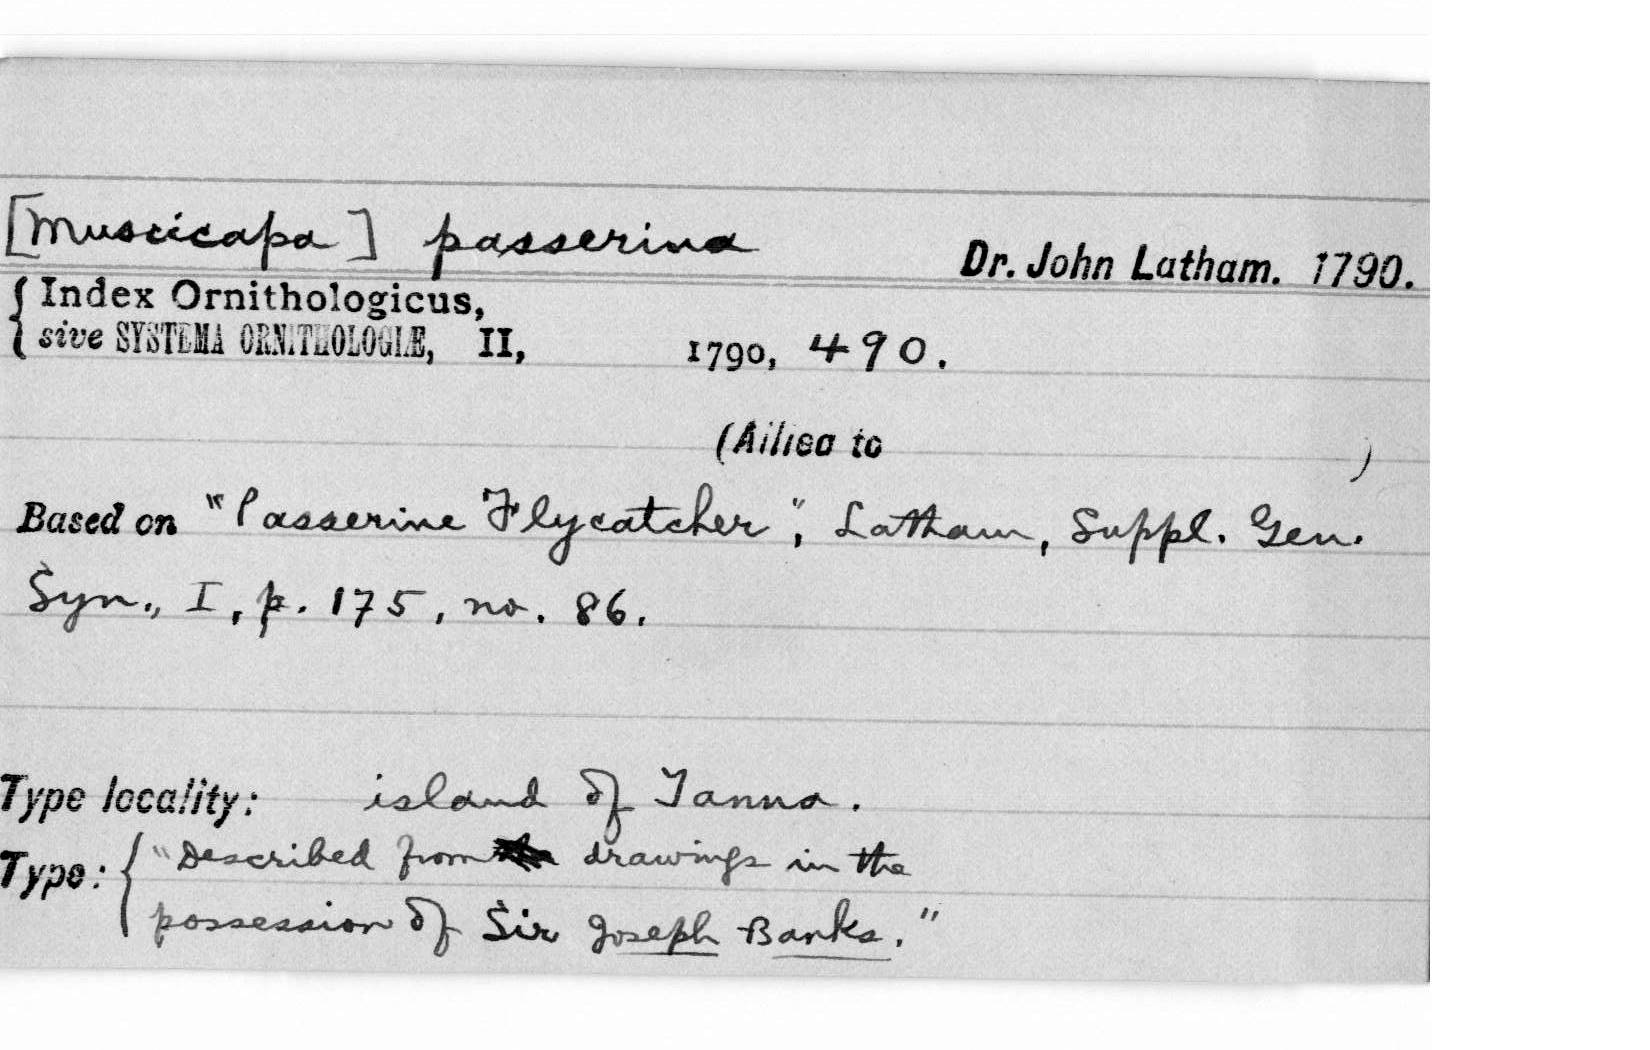 [Muscicapa] passerina Dr. John Latham. 1790.
{ Index Ornithologicus,
sive SYSTEMA ORNITHOLOGIÆ, II, 1790, 490.
(Allied to )
Based on "Passerine Flycatcher", Latham, Suppl. Gen.
Syn., I, p. 175, no. 86.
Type locality: island of Tanna.
Type: { "Described from drawings in the
possession of Sir Joseph Banks."